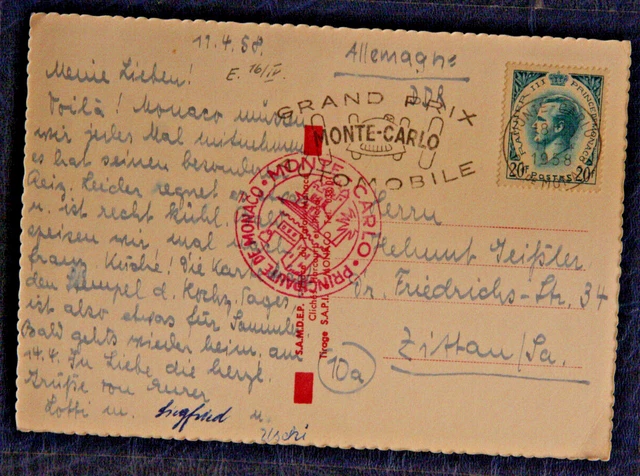 19.4.58.
E. 16/IV.
Meine Lieben!
Voilà! Monaco müssen
wir jedes Mal mitnehmen
es hat seinen besonderen
Reiz. Leider regnet es
u. ist recht kühl.
speisen wir mal
franz. Küche! Die Karte
den Stempel d. Hochz. Tages,
ist also etwas für Sammler
Bald gehts wieder heim, am
14.4. In Liebe die herzl.
Grüße von Eurer
Lotti u. Siegfried u.
Uschi
Allemagne
DDR
GRAND PRIX
MONTE-CARLO
AUTOMOBILE
RAINIER III PRINCE DE MONACO
20F POSTES 20F
MONTE-CARLO
1958
MONTE-CARLO • PRINCIPAUTÉ DE MONACO •
S.A.M.D.E.P.
Tirage S.A.P.I. MONACO
Herrn
Helmut Zeißler
Dr. Friedrichs-Str. 34
Zittau/Sa.
10a